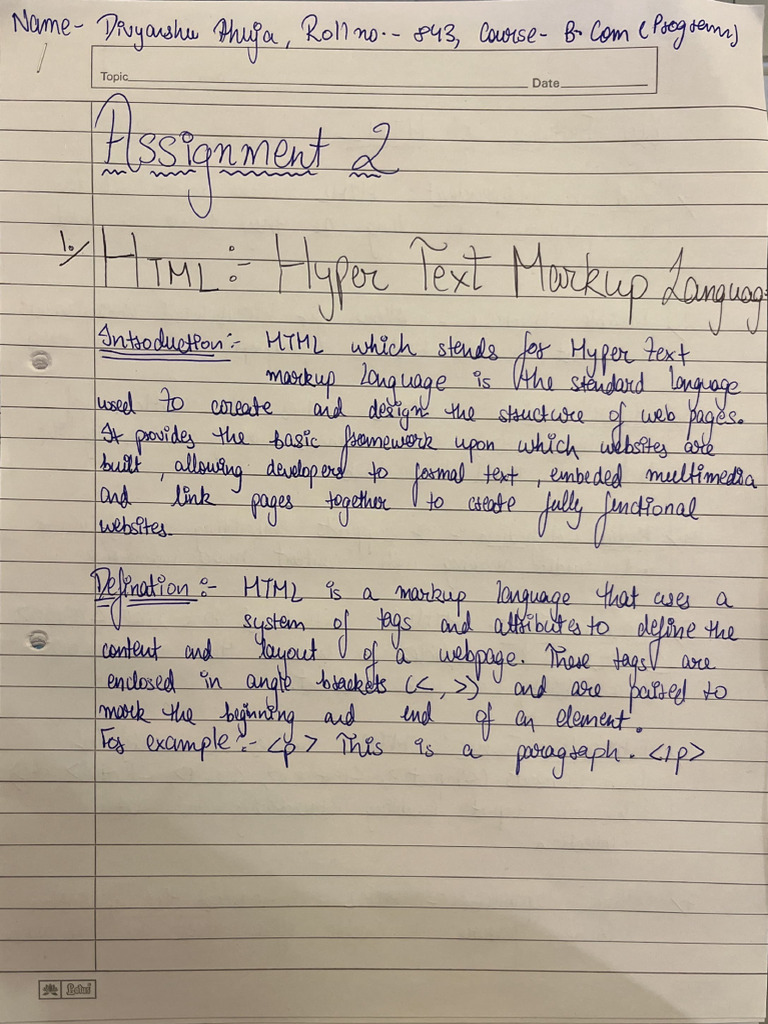 Name- Divyanshu Ahuja, Roll no.- 843, Course- B.Com (Program)
Topic Date
Assignment 2
1. HTML:- Hyper Text Markup Language
Introduction:- HTML which stends for Hyper text
markup language is the standard language
used to coreate and design the structure of web pages.
It provides the basic framework upon which websites are
built, allowing developers to formal text, embeded multimedia
and link pages together to create fully functional
websites.
Defination:- HTML is a markup language that uses a
system of tags and attributes to define the
content and layout of a webpage. These tags are
enclosed in angle brackets (<, >) and are paired to
mark the beginning and end of an element.
For example:- <p> This is a paragraph. </p>
Lotus